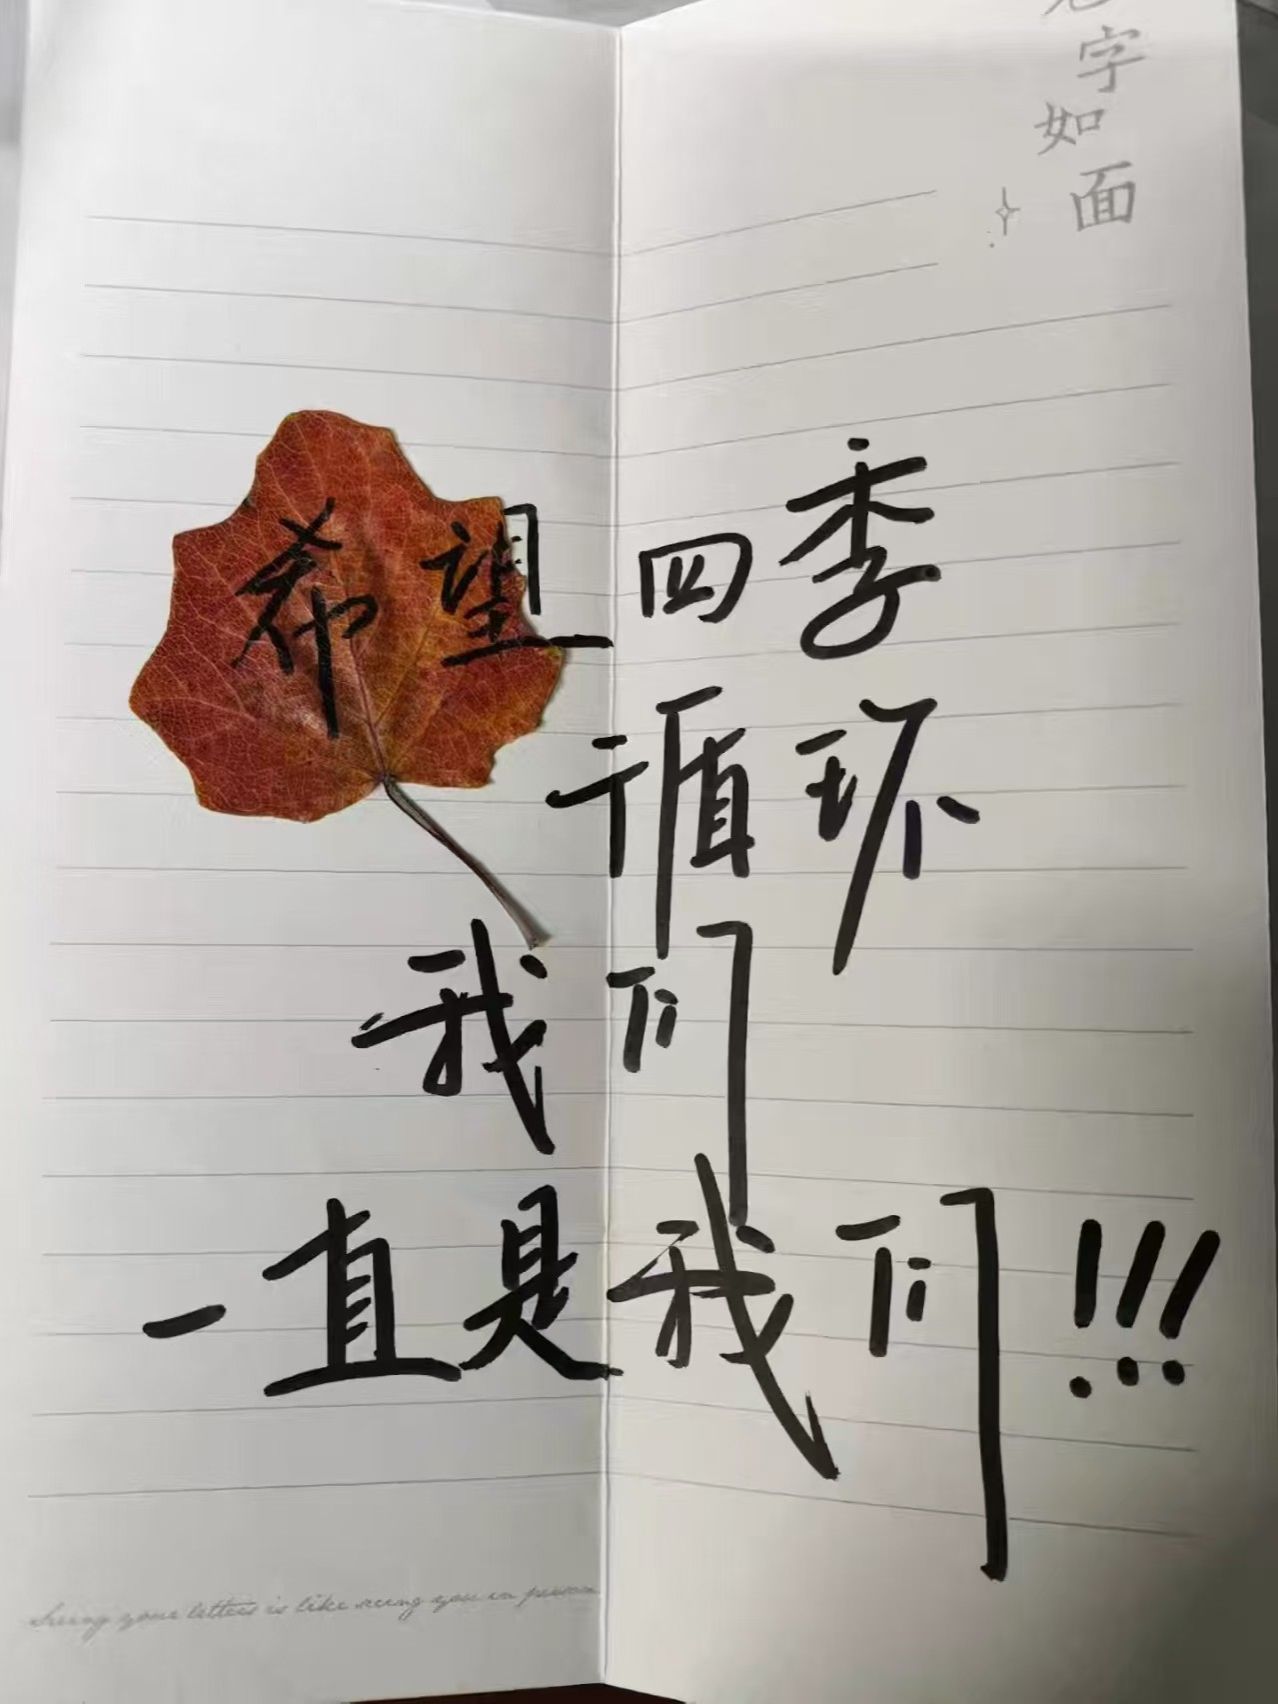 见字如面
希望四季
循环
我们
一直是我们!!!
Seeing your letters is like seeing you in person